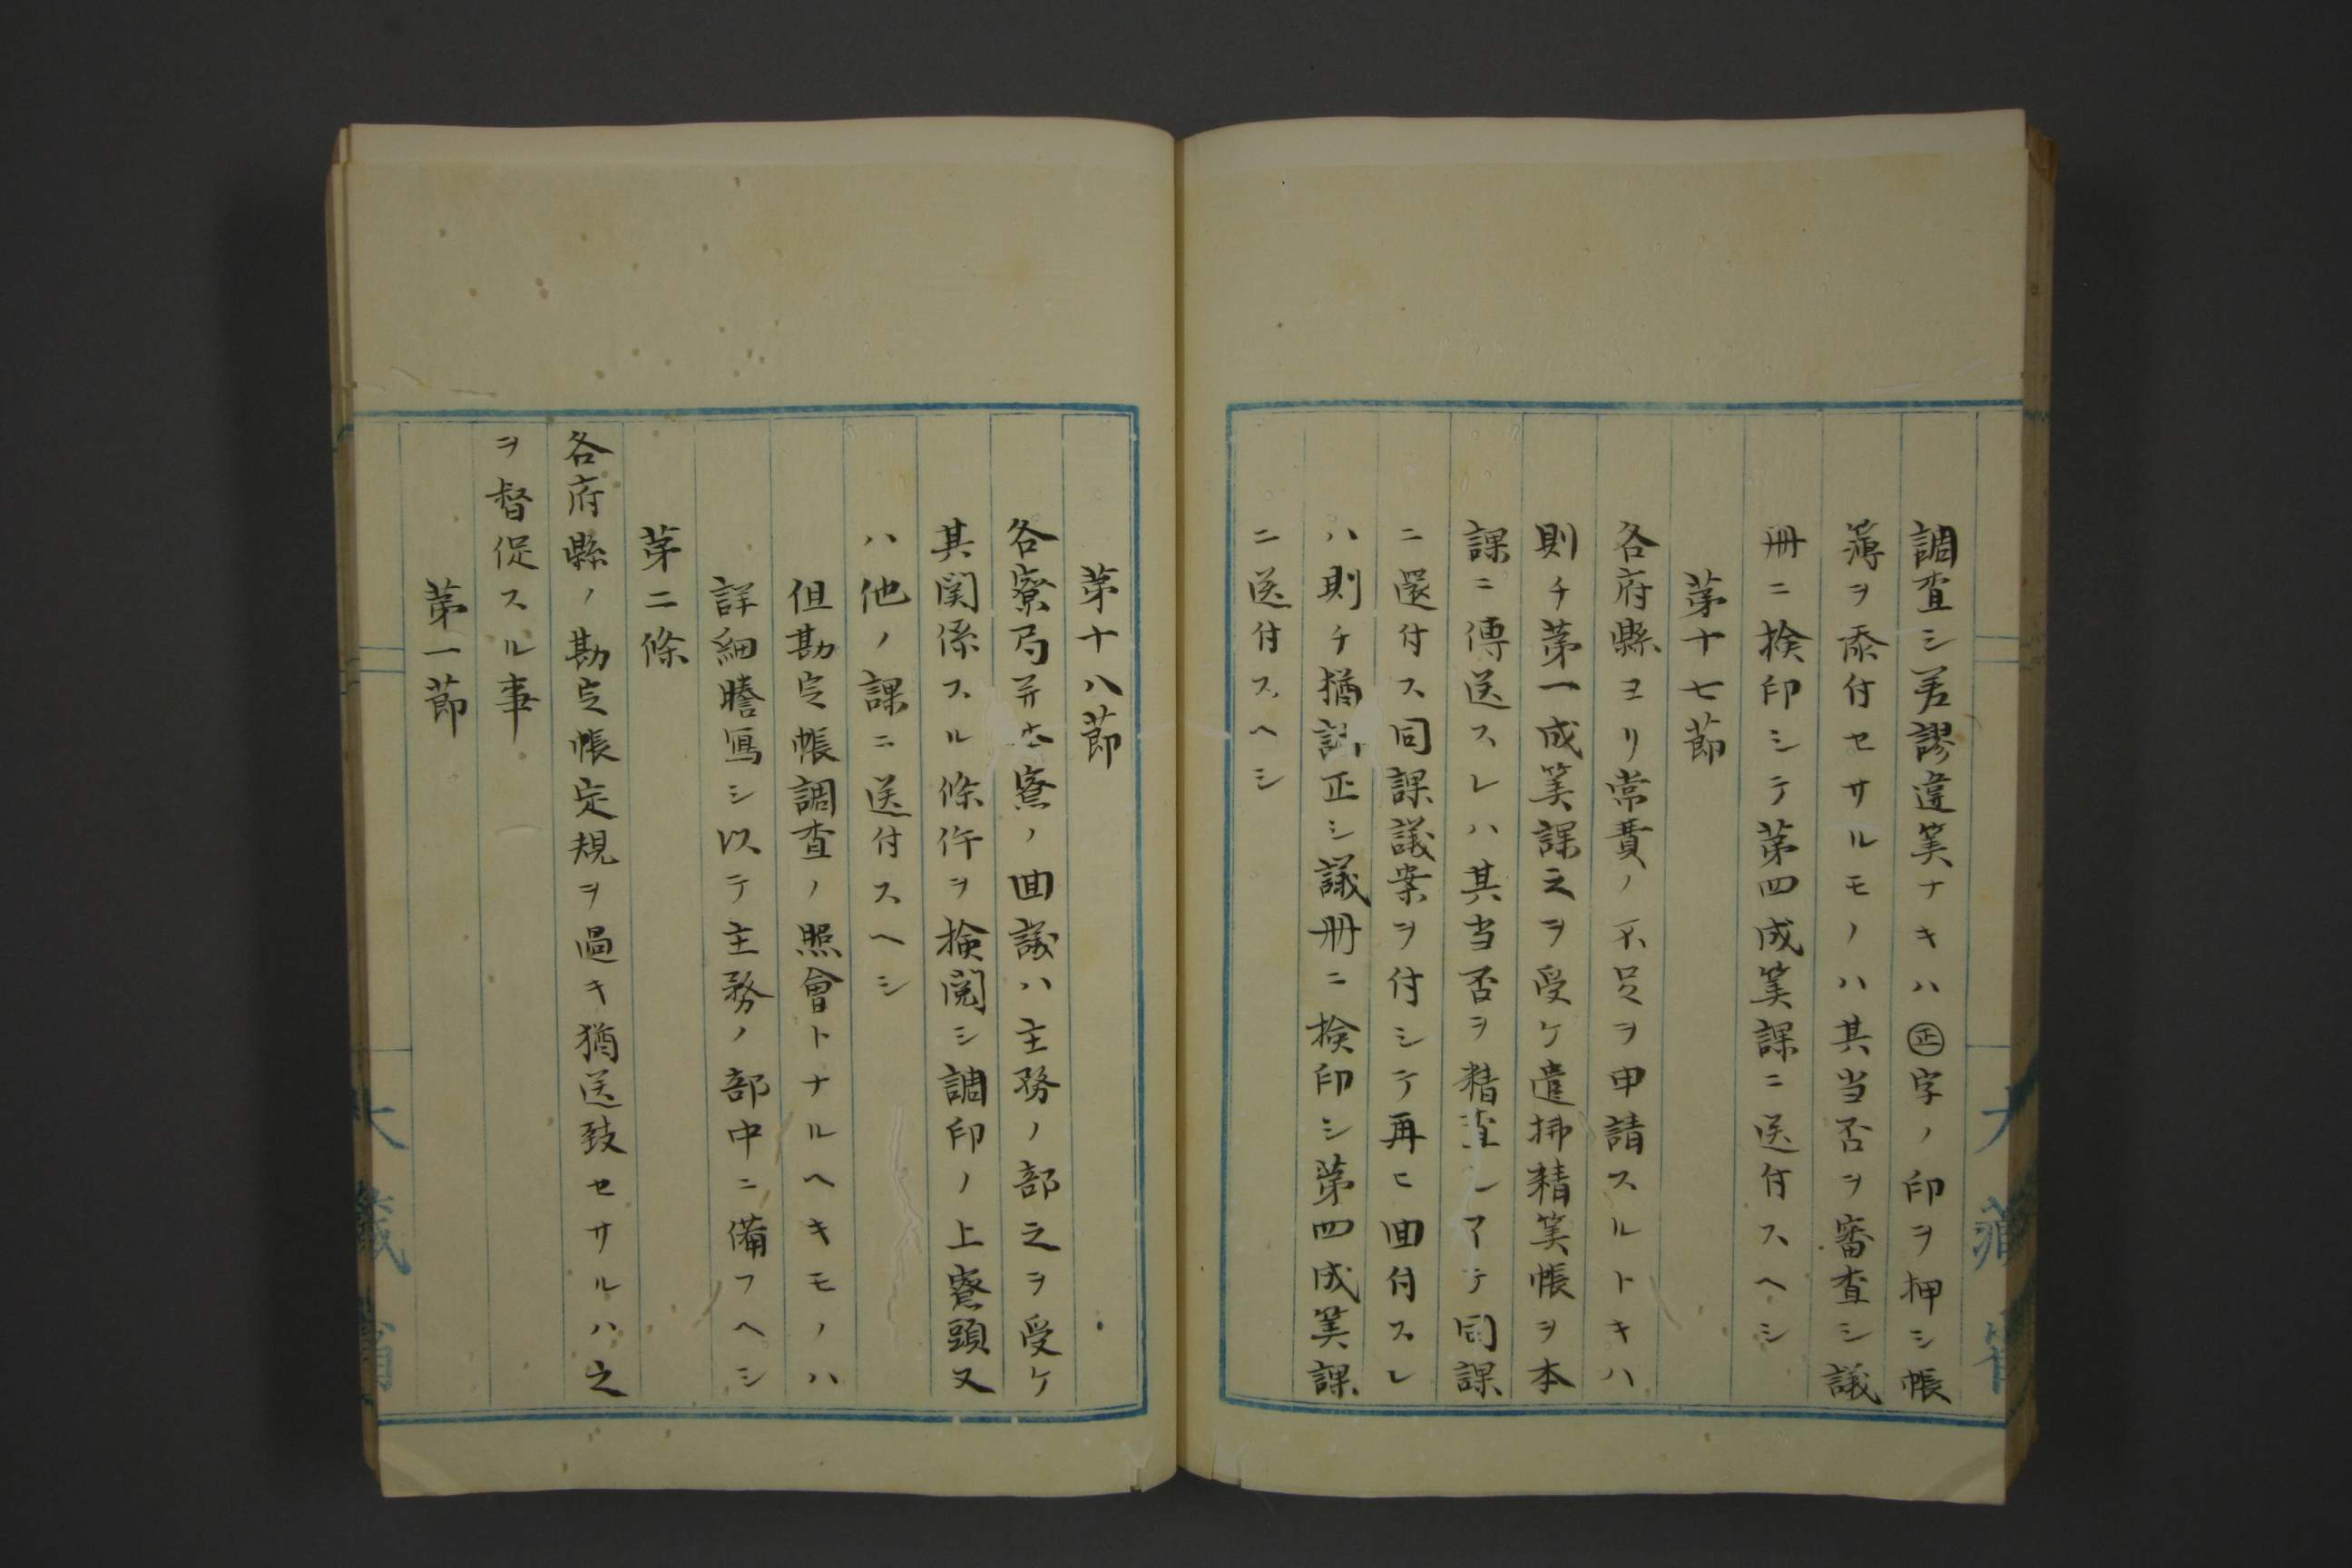 調査シ若謬違筭ナキハ㊣字ノ印ヲ押シ帳
簿ヲ添付セサルモノハ其当否ヲ審査シ議
冊ニ検印シテ第四成筭課ニ送付スヘシ
第十七節
各府縣ヨリ常費ノ不足ヲ申請スルトキハ
則チ第一成筭課之ヲ受ケ遣拂精筭帳ヲ本
課ニ傳送スレハ其当否ヲ精査シテ同課
ニ還付ス同課議案ヲ付シテ再ヒ回付スレ
ハ則チ猶訂正シ議冊ニ検印シ第四成筭課
ニ送付スヘシ
第十八節
各寮局并本寮ノ回議ハ主務ノ部之ヲ受ケ
其関係スル條件ヲ検閲シ調印ノ上寮頭又
ハ他ノ課ニ送付スヘシ
但勘定帳調査ノ照會トナルヘキモノハ
詳細謄寫シ以テ主務ノ部中ニ備フヘシ
第二條
各府縣ノ勘定帳定規ヲ過キ猶送致セサルハ之
ヲ督促スル事
第一節